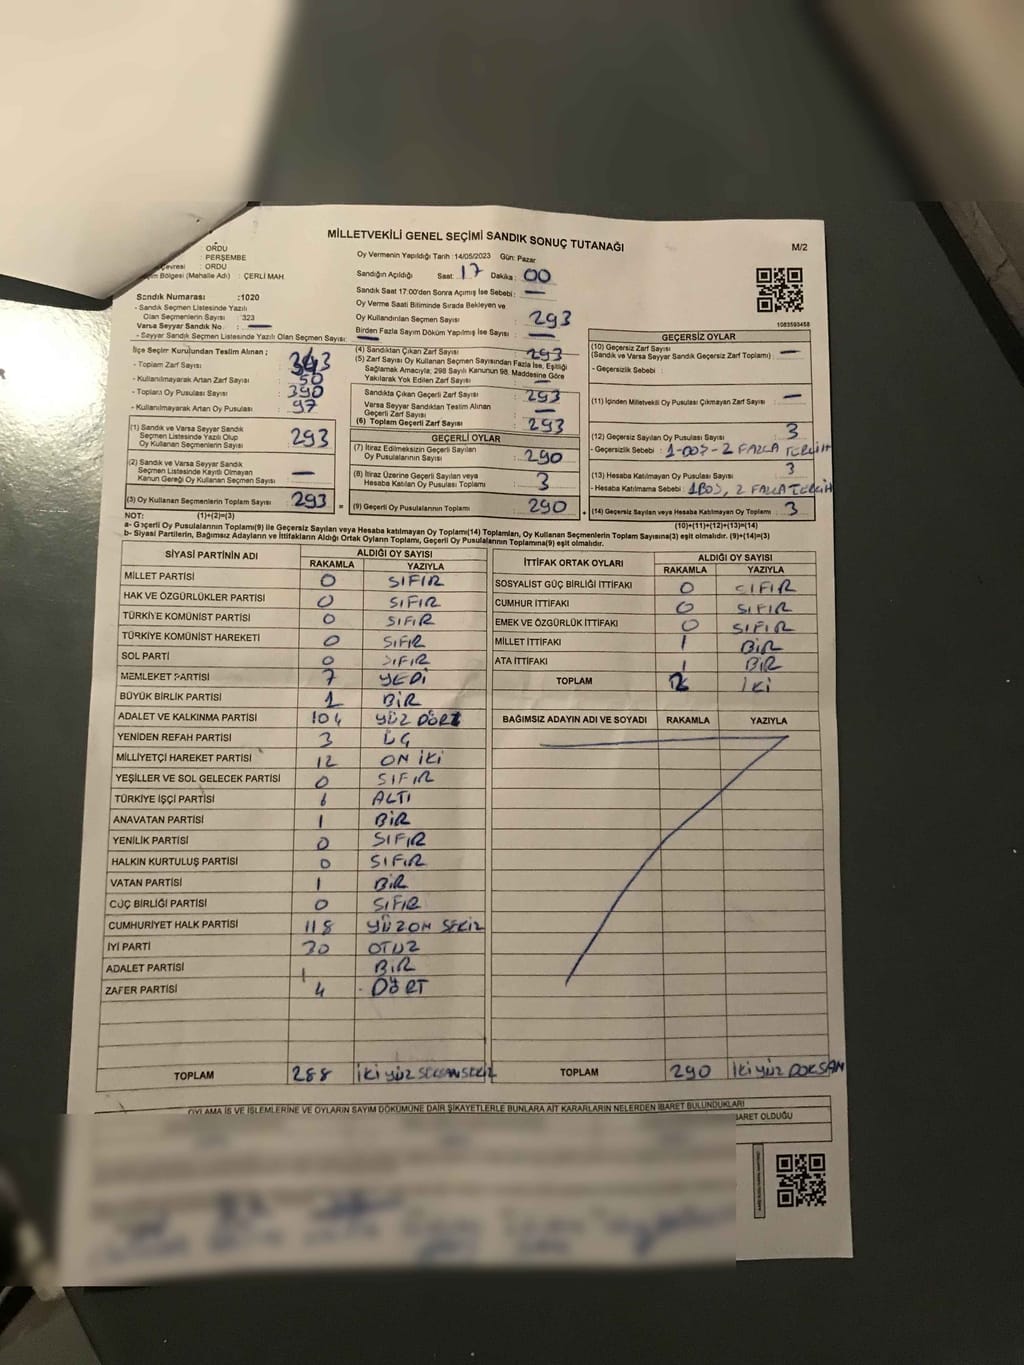 MİLLETVEKİLİ GENEL SEÇİMİ SANDIK SONUÇ TUTANAĞI
M/2
ORDU
: PERŞEMBE
çevresi : ORDU
Bölgesi (Mahalle Adı) : ÇERLİ MAH
Sandık Numarası :1020
- Sandık Seçmen Listesinde Yazılı
Olan Seçmenlerin Sayısı : 323
Varsa Seyyar Sandık No :
- Seyyar Sandık Seçmen Listesinde Yazılı Olan Seçmen Sayısı:
Oy Vermenin Yapıldığı Tarih :14/05/2023 Gün: Pazar
Sandığın Açıldığı Saat: 17 Dakika: 00
Sandık Saat 17:00'den Sonra Açılmış İse Sebebi : —
Oy Verme Saati Bitiminde Sırada Bekleyen ve
Oy Kullandırılan Seçmen Sayısı : 293
Birden Fazla Sayım Döküm Yapılmış İse Sayısı : —
1083593458
İlçe Seçim Kurulundan Teslim Alınan ;
- Toplam Zarf Sayısı : 343
- Kullanılmayarak Artan Zarf Sayısı : 50
- Toplam Oy Pusulası Sayısı : 390
- Kullanılmayarak Artan Oy Pusulası : 97
(1) Sandık ve Varsa Seyyar Sandık
Seçmen Listesinde Yazılı Olup
Oy Kullanan Seçmenlerin Sayısı : 293
(2) Sandık ve Varsa Seyyar Sandık
Seçmen Listesinde Kayıtlı Olmayan
Kanun Gereği Oy Kullanan Seçmen Sayısı : —
(3) Oy Kullanan Seçmenlerin Toplam Sayısı : 293
(4) Sandıktan Çıkan Zarf Sayısı : 293
(5) Zarf Sayısı Oy Kullanan Seçmen Sayısından Fazla İse, Eşitliği
Sağlamak Amacıyla; 298 Sayılı Kanunun 98. Maddesine Göre
Yakılarak Yok Edilen Zarf Sayısı : —
Sandıkta Çıkan Geçerli Zarf Sayısı : 293
Varsa Seyyar Sandıktan Teslim Alınan
Geçerli Zarf Sayısı : —
(6) Toplam Geçerli Zarf Sayısı : 293
GEÇERLİ OYLAR
(7) İtiraz Edilmeksizin Geçerli Sayılan
Oy Pusulasının Sayısı : 290
(8) İtiraz Üzerine Geçerli Sayılan veya
Hesaba Katılan Oy Pusulası Toplamı : 3
= (9) Geçerli Oy Pusulalarının Toplamı : 290
GEÇERSİZ OYLAR
(10) Geçersiz Zarf Sayısı
(Sandık ve Varsa Seyyar Sandık Geçersiz Zarf Toplamı) : —
- Geçersizlik Sebebi :
(11) İçinden Milletvekili Oy Pusulası Çıkmayan Zarf Sayısı : —
(12) Geçersiz Sayılan Oy Pusulası Sayısı : 3
- Geçersizlik Sebebi : 1-BOŞ-2 FAZLA TERCİH
(13) Hesaba Katılmayan Oy Pusulası Sayısı : 3
- Hesaba Katılmama Sebebi : 1BOŞ, 2 FAZLA TERCİH
+ (14) Geçersiz Sayılan veya Hesaba Katılmayan Oy Toplamı : 3
NOT: (1)+(2)=(3) (10)+(11)+(12)+(13)=(14)
a- Geçerli Oy Pusulalarının Toplamı(9) ile Geçersiz Sayılan veya Hesaba katılmayan Oy Toplamı(14) Toplamları, Oy Kullanan Seçmenlerin Toplam Sayısına(3) eşit olmalıdır. (9)+(14)=(3)
b- Siyasi Partilerin, Bağımsız Adayların ve İttifakların Aldığı Ortak Oyların Toplamı, Geçerli Oy Pusulalarının Toplamına(9) eşit olmalıdır.
SİYASİ PARTİNİN ADI
ALDIĞI OY SAYISI
RAKAMLA YAZIYLA
MİLLET PARTİSİ 0 SIFIR
HAK VE ÖZGÜRLÜKLER PARTİSİ 0 SIFIR
TÜRKİYE KOMÜNİST PARTİSİ 0 SIFIR
TÜRKİYE KOMÜNİST HAREKETİ 0 SIFIR
SOL PARTİ 0 SIFIR
MEMLEKET PARTİSİ 7 YEDİ
BÜYÜK BİRLİK PARTİSİ 1 BİR
ADALET VE KALKINMA PARTİSİ 104 YÜZ DÖRT
YENİDEN REFAH PARTİSİ 3 ÜÇ
MİLLİYETÇİ HAREKET PARTİSİ 12 ON İKİ
YEŞİLLER VE SOL GELECEK PARTİSİ 0 SIFIR
TÜRKİYE İŞÇİ PARTİSİ 6 ALTI
ANAVATAN PARTİSİ 1 BİR
YENİLİK PARTİSİ 0 SIFIR
HALKIN KURTULUŞ PARTİSİ 0 SIFIR
VATAN PARTİSİ 1 BİR
GÜÇ BİRLİĞİ PARTİSİ 0 SIFIR
CUMHURİYET HALK PARTİSİ 118 YÜZON SEKİZ
İYİ PARTİ 30 OTUZ
ADALET PARTİSİ 1 BİR
ZAFER PARTİSİ 4 DÖRT
TOPLAM 288 İKİ YÜZ SEKSAN SEKİZ
İTTİFAK ORTAK OYLARI
ALDIĞI OY SAYISI
RAKAMLA YAZIYLA
SOSYALİST GÜÇ BİRLİĞİ İTTİFAKI 0 SIFIR
CUMHUR İTTİFAKI 0 SIFIR
EMEK VE ÖZGÜRLÜK İTTİFAKI 0 SIFIR
MİLLET İTTİFAKI 1 BİR
ATA İTTİFAKI 1 BİR
TOPLAM 2 İKİ
BAĞIMSIZ ADAYIN ADI VE SOYADI RAKAMLA YAZIYLA
TOPLAM 290 İKİ YÜZ DOKSAN
OYLAMA İŞ VE İŞLEMLERİNE VE OYLARIN SAYIM DÖKÜMÜNE DAİR ŞİKAYETLERLE BUNLARA AİT KARARLARIN NELERDEN İBARET BULUNDUKLARI
İBARET OLDUĞU